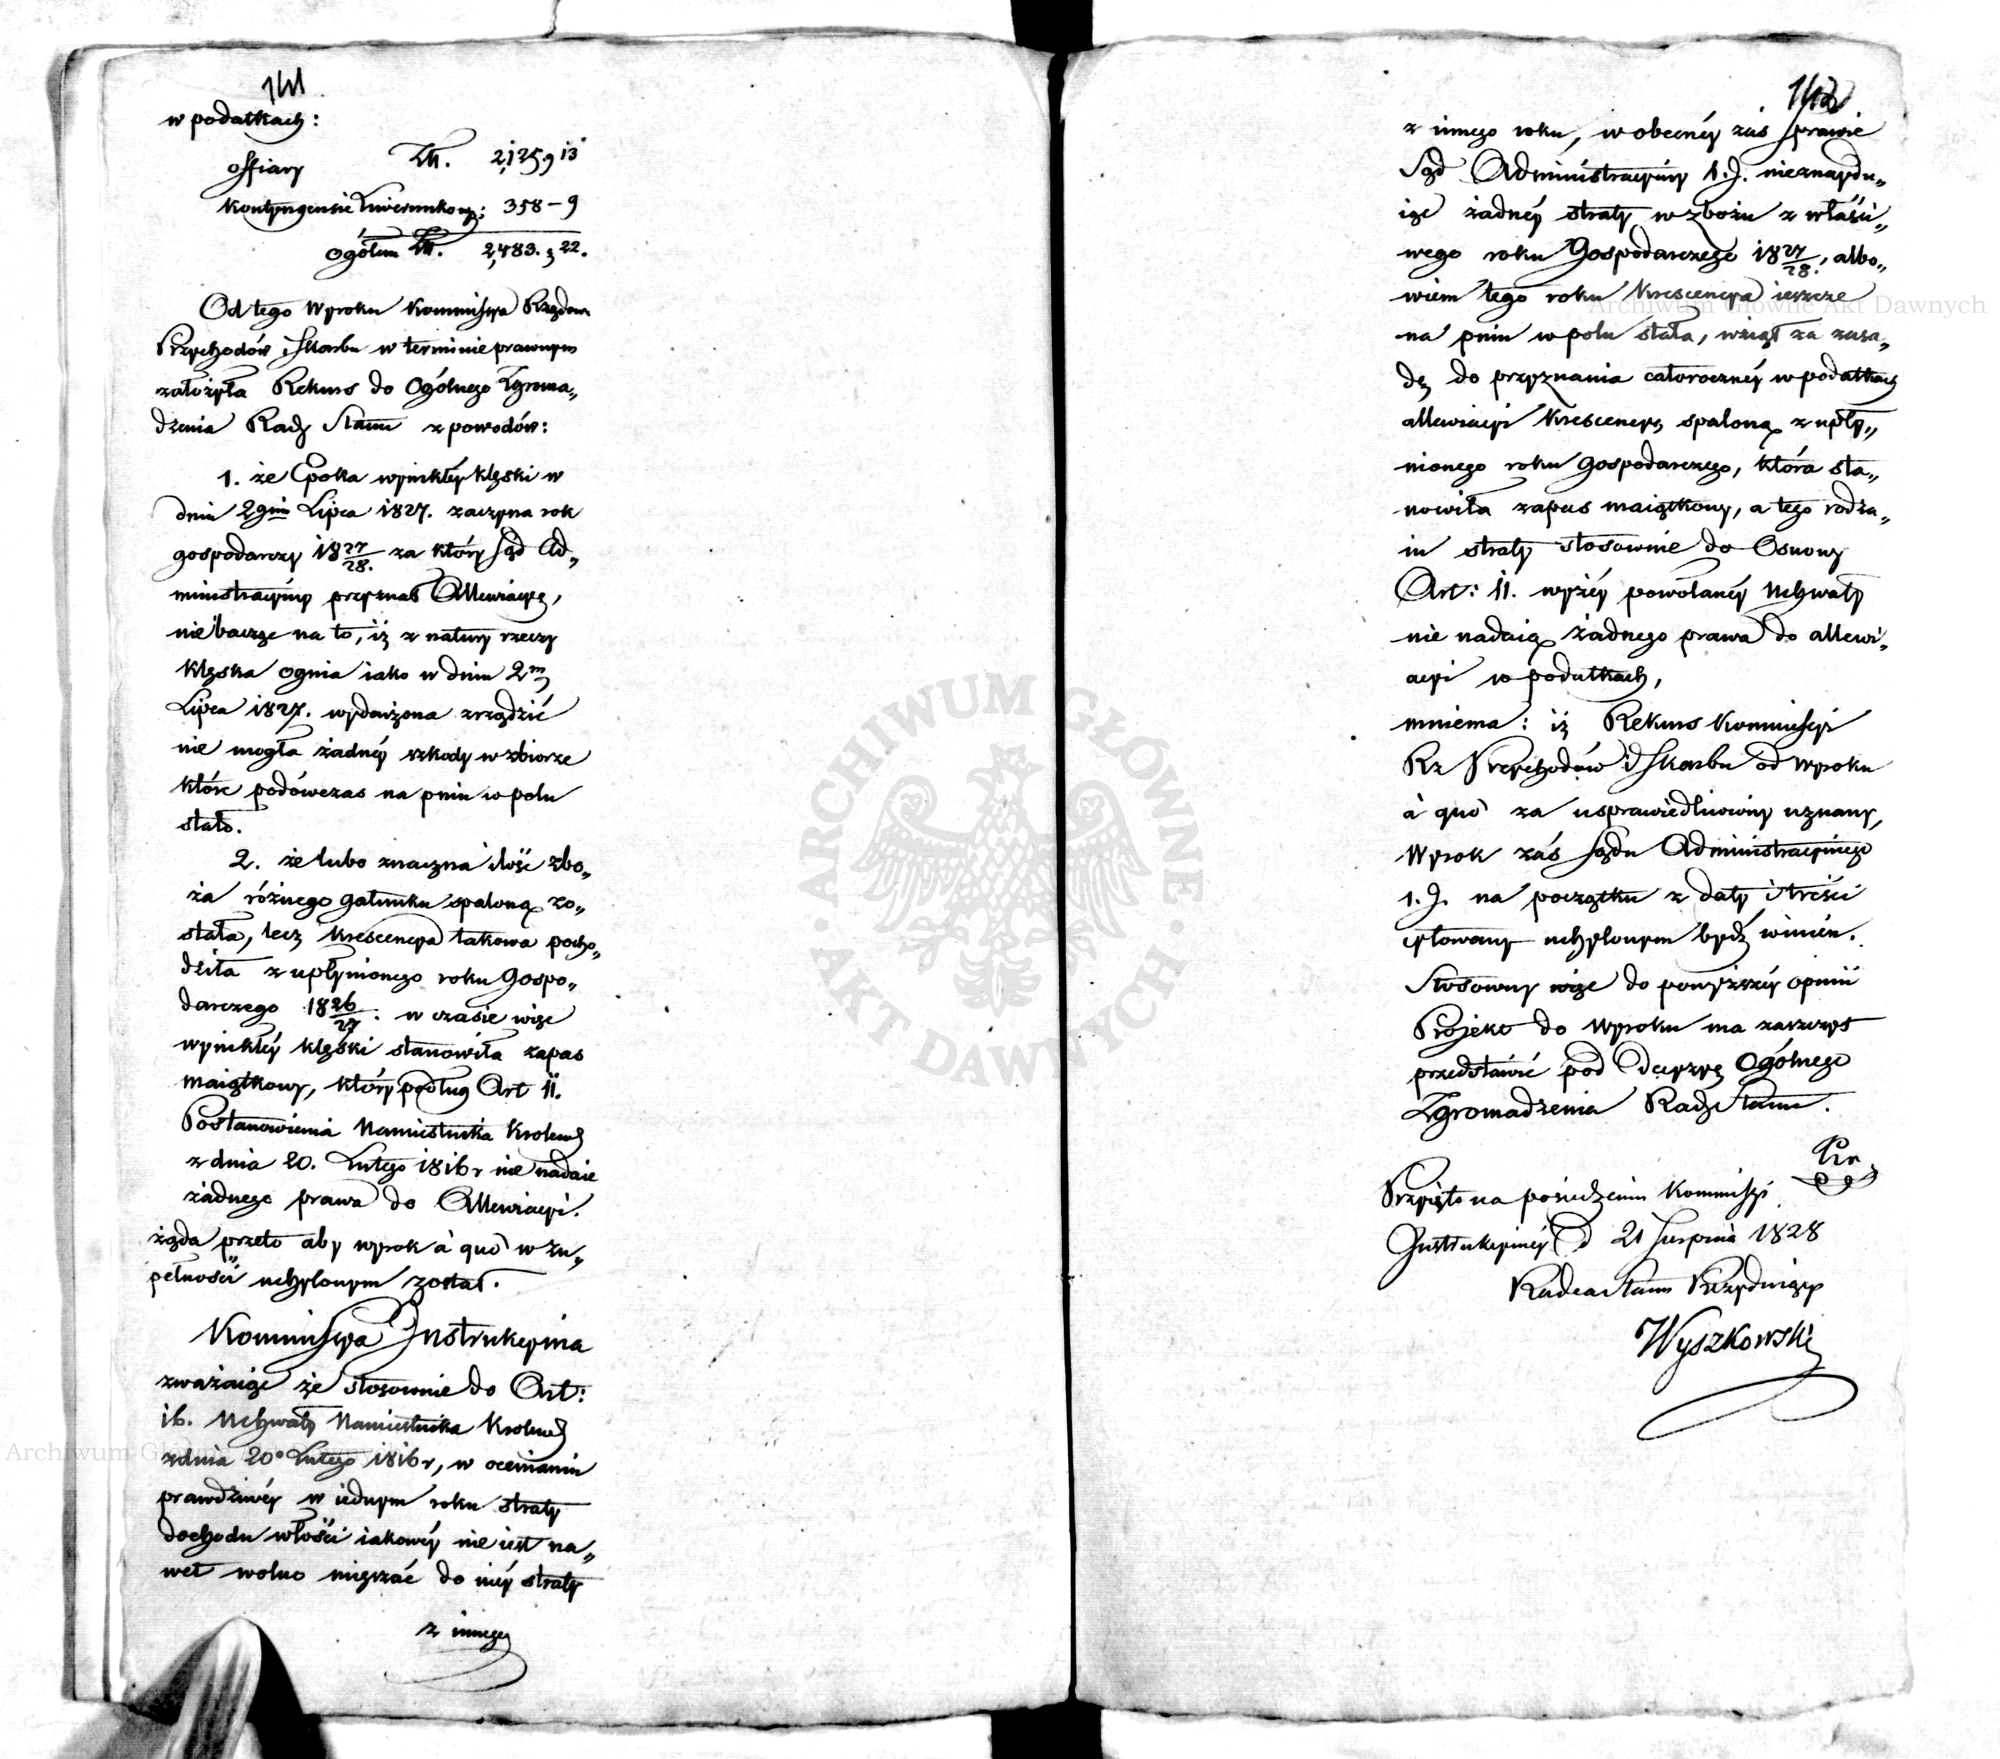 141
w podatkach:
offiary Zł. 2,125, 13
Kontyngensie Liwerunkowy: 358-9
ogółem Zł. 2,483. 22.
Od tego Wyroku Kommissya Rządowa
Przychodów i Skarbu w terminie prawnym
założyła Rekurs do Ogólnego Zgroma„
dzenia Rady Stanu z powodów:
1. że Epoka wynikłéy klęski w
dniu 29 Lipca 1827. zaczyna rok
gospodarczy 1827/28. za który Sąd Ad„
ministracyiny przyznał Allewiacyę,
nie bacząc na to, iż z natury rzeczy
klęska ognia iako w dniu 2
Lipca 1827. wydarzona zrządzić
nie mogła żadnéy szkody w zbiorze
które podówczas na pniu w polu
stało.
2. że lubo znaczna ilość zbo„
ża różnego gatunku spaloną zo„
stała, lecz krescencya takowa pocho„
dziła z upłynionego roku Gospo„
darczego 1826/27. w czasie więc
wynikłéy klęski stanowiła zapas
maiątkowy, który podług Art 11.
Postanowienia Namiestnika Królew
z dnia 20. Lutego 1816 r nie nadaie
żadnego prawa do Allewiacyi.
żąda przeto aby wyrok à quo w zu„
pełności uchylonym został.
Kommissya Instrukcyina
zważaiąc że stosownie do Art:
16. Uchwały Namiestnika Królew
z dnia 20 Lutego 1816 r, w ocenianiu
prawdziwéy w iednym roku straty
dochodu włości iakowéy nie iest na„
wet wolno mięszać do niéy straty
z innego
142
z innego roku, w obecnéy zaś sprawie
Sąd Administracyiny 1. J. nieznaydu„
iąc żadnéy straty w zbożu z właści„
wego roku Gospodarczego 1827/28., albo„
wiem tego roku krescencya ieszcze
na pniu w polu stała, wziął za zasa„
dę do przyznania całorocznéy w podatkach
allewiacyi krescencyę spaloną z upły„
nionego roku gospodarczego, która sta„
nowiła zapas maiątkowy, a tego rodza„
iu straty stosownie do Osnowy
Art: 11. wyżéy powołanéy Uchwały
nie nadaią żadnego prawa do allewi„
acyi w podatkach,
mniema: iż Rekurs Kommissyi
Rz Przychodów i Skarbu od Wyroku
à quo za usprawiedliwiony uznany,
Wyrok zaś Sądu Administracyinego
1. J. na początku z daty i treści
cytowany uchylonym bydź winien.
Stosowny więc do powyższéy opinii
Projekt do Wyroku ma zaszczyt
przedstawić pod decyzyę Ogólnego
Zgromadzenia Rady Stanu.
Przyięto na posiedzeniu Kommissyi
Instrukcyinéy d 21 Sierpnia 1828
Radca Stanu Prezyduiący
Wyszkowski
ARCHIWUM GŁÓWNE
AKT DAWNYCH
Archiwum Główne Akt Dawnych
Archiwum Główne Akt Dawnych